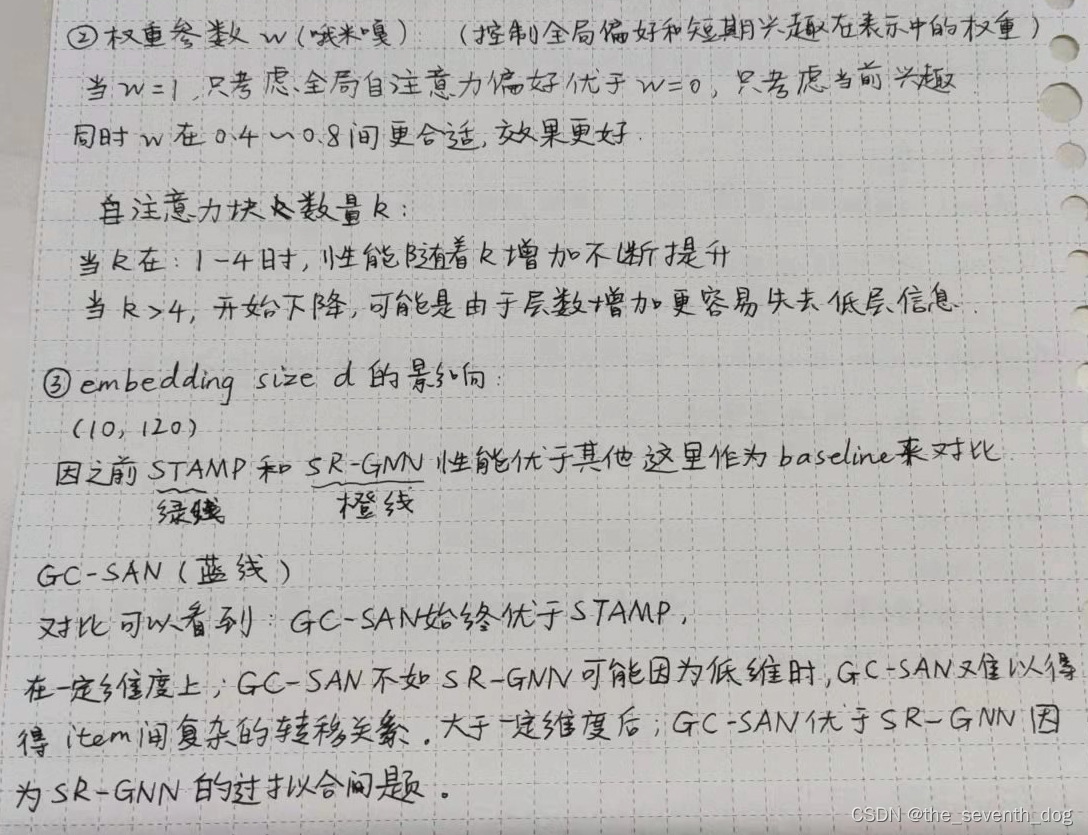 ②权重参数 w (哦米嘎) (控制全局偏好和短期兴趣在表示中的权重)
当w=1,只考虑全局自注意力偏好优于w=0,只考虑当前兴趣
同时w在0.4~0.8间更合适,效果更好.
自注意力块数量k:
当k在:1-4时,性能随着k增加不断提升
当k>4,开始下降,可能是由于层数增加更容易失去低层信息.
③embedding size d 的影响:
(10, 120)
因之前 STAMP 和 SR-GNN 性能优于其他 这里作为baseline来对比
绿线 橙线
GC-SAN (蓝线)
对比可以看到: GC-SAN始终优于STAMP,
在一定维度上;GC-SAN不如SR-GNN可能因为低维时,GC-SAN难以得
得item间复杂的转移关系.大于一定维度后;GC-SAN优于SR-GNN因
为SR-GNN的过拟合问题。
CSDN @the_seventh_dog